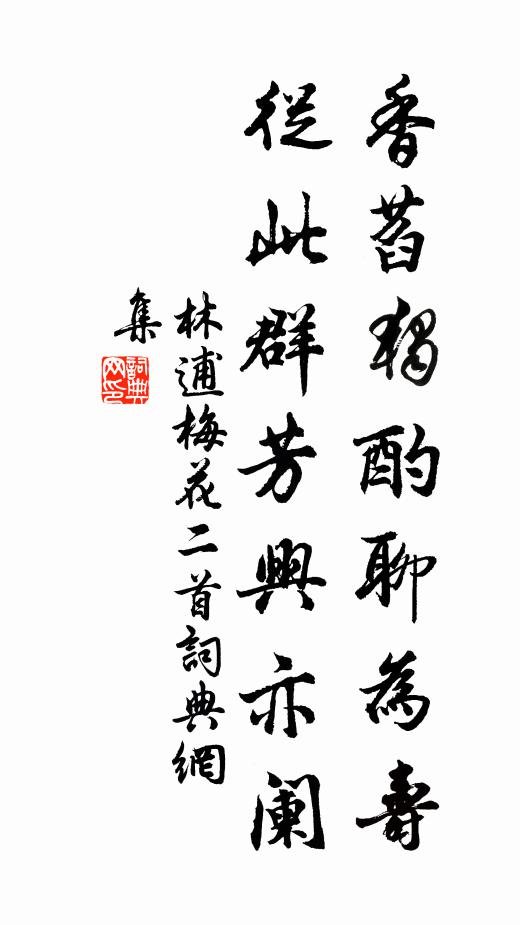 香蒭獨酌聊為壽
從此群芳興亦闌
林逋梅花二首詞典網
集
詞典
网印